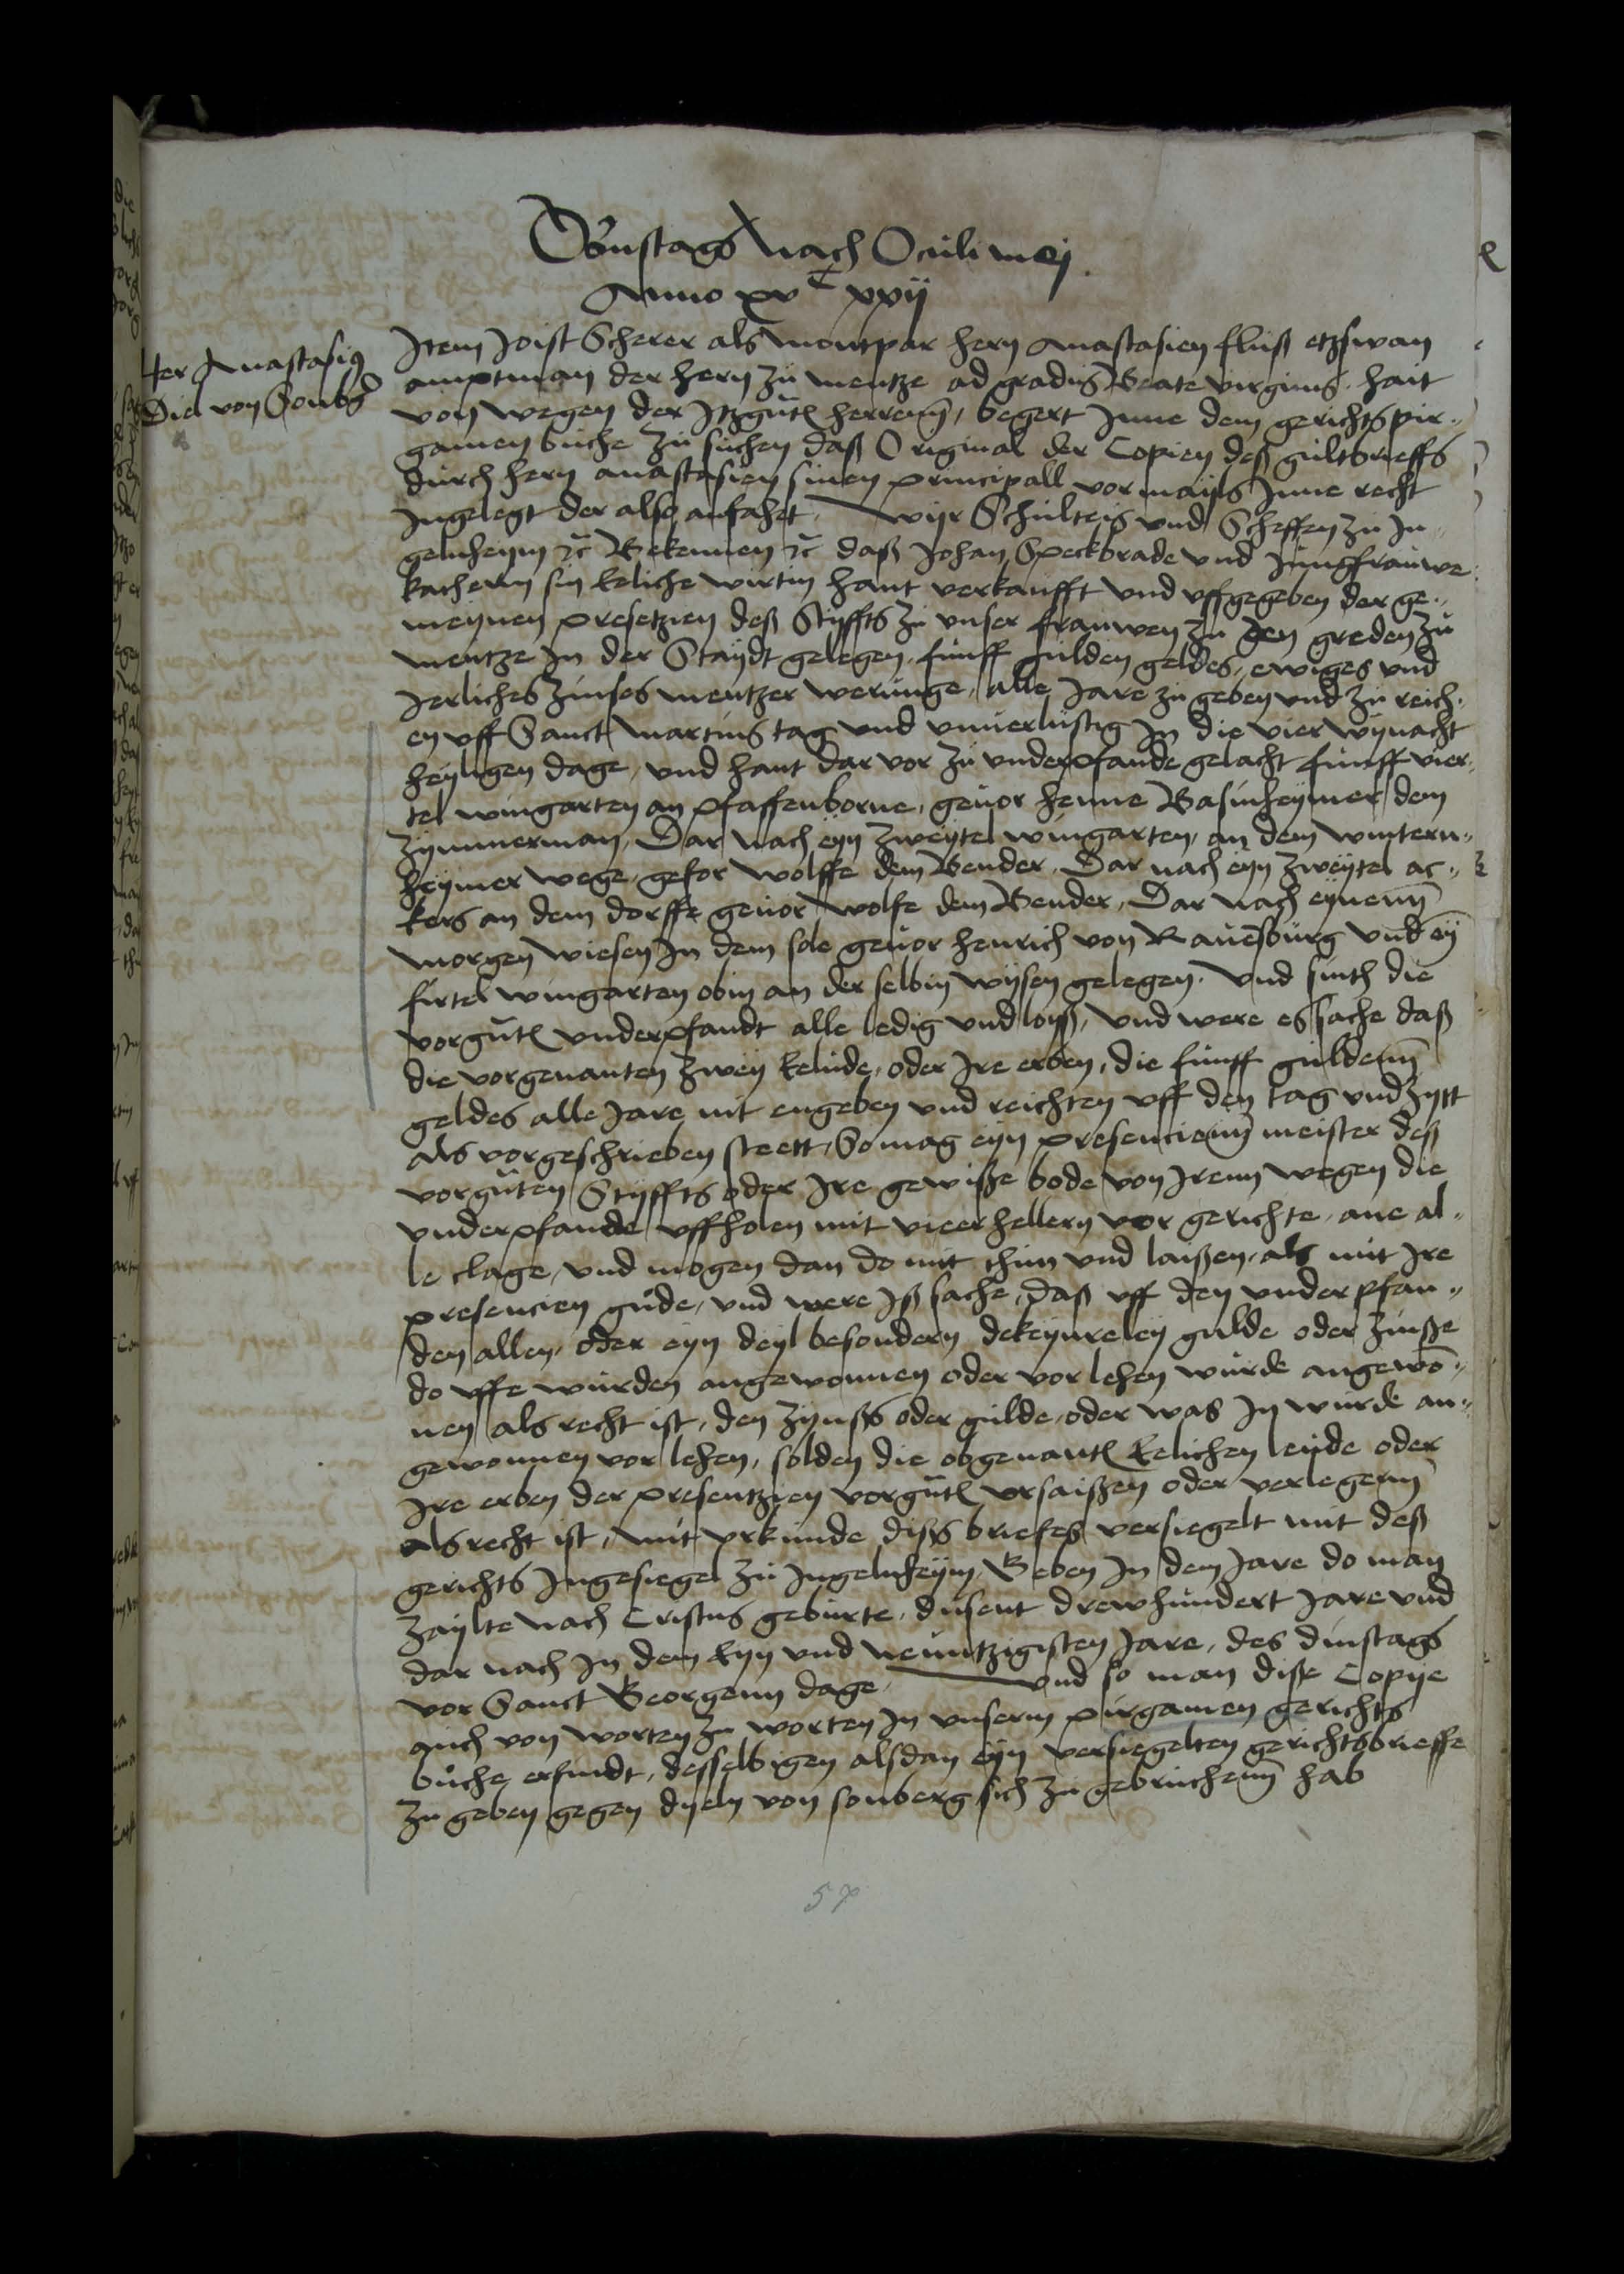 Donstags nach Oculi mej.
Anno xvᶜ xxij
Her Anastasius
Diel von Sonbg
Item Joist Scherer als montpar hern Anastasien fluß etzswan
amptman der hern zu mentze ad gradus Beate virginis hait
von wegen der Itzgnten herrenn, begert Inne dem gerichts pir„
gamen buche zu suchen daß Original der Copien deß gultbrieffs
durch hern anastasien sinen principall vormayls Inne recht
Ingelegt der also anfahet, wyr Schulteis und Scheffen zu In„
gelnheym ꝛc Bekennen ꝛc daß Johan Speckbrade und Jungfrauwe
kachern sin Eeliche wirtin hant verkaufft und uffgegeben der ge„
meynen presetzien deß Styffts zu unser frauwen zu den greden zu
mentze In der Staydt gelegen, funff gulden geldes, ewiges und
Jerliches zinses mentzer werunge, alle Jare zu geben und zu reich„
en uff Sanct Martins tag und unverlustig In die vier wynacht
heylgen dage, und hant dar vor zu underpfande gelacht funff vier„
tel wingarten an pfaffenborne, gevor henne Basinheymer dem
zymmerman, Dar nach eyn zweytel wingarten, an dem wintern„
heymer wege, gefor wolffe dem Bender, Dar nach eyn zweytel ac„
kers an dem dorffe gevor wolfe dem Bender, Dar nach eynenn
morgen wiesen In dem sole gevor henrich von Ravensburg und ey
firtel wingarten obin an der selbin wysen gelegen, und sinth die
vorgnten underpfandt alle ledig und loyß, und were es sache daß
die vorgenanten zwey Eelude, oder Ire erben, die funff guldenn
geldes alle Jare nit engeben und reichten uff den tag und zytt
als vorgeschrieben steett, So mag eyn presencienn meister deß
vorgnten Styffts oder Ire gewisße bode von Irenn wegen die
underpfande uffholen mit vieer hellern vor gerichte, ane al„
le clage, und mogen dan do mit thun und laißen, als mit Ire
presencien gude, und were Iß sache, daß uff den underpfan„
den allen, oder eyn deyl besondern dekeynreley gulde oder zinße
do uffe wurden angewonnen oder vor lehen wurde angewo„
nen als recht ist, den zynßs oder gulde, oder was In wurde an„
gewonnen vor lehen, solden die obgenanten Eelichen leude oder
Ire erben der presentzien vorgnten ersaißen oder verlegenn
als recht ist, mit urkunde dißs briefeß versiegelt mit deß
gerichts Ingesiegel zu Ingelnheym, Geben In dem Jare do man
zaylte nach Cristus geburte, dusent drewhundert Jare und
dar nach In dem Eyn und neuntzigisten Jare, des dinstags
vor Sanct Georgenn dage, und so man diße Copye
auch von worten zu worten In unserm pirgamen gerichts
buche erfindt, desselbigen alsdan eyn versiegelten gerichtsbrieffe
zu geben gegen dyeln von sonberg sich zu gebruchenn hab
57